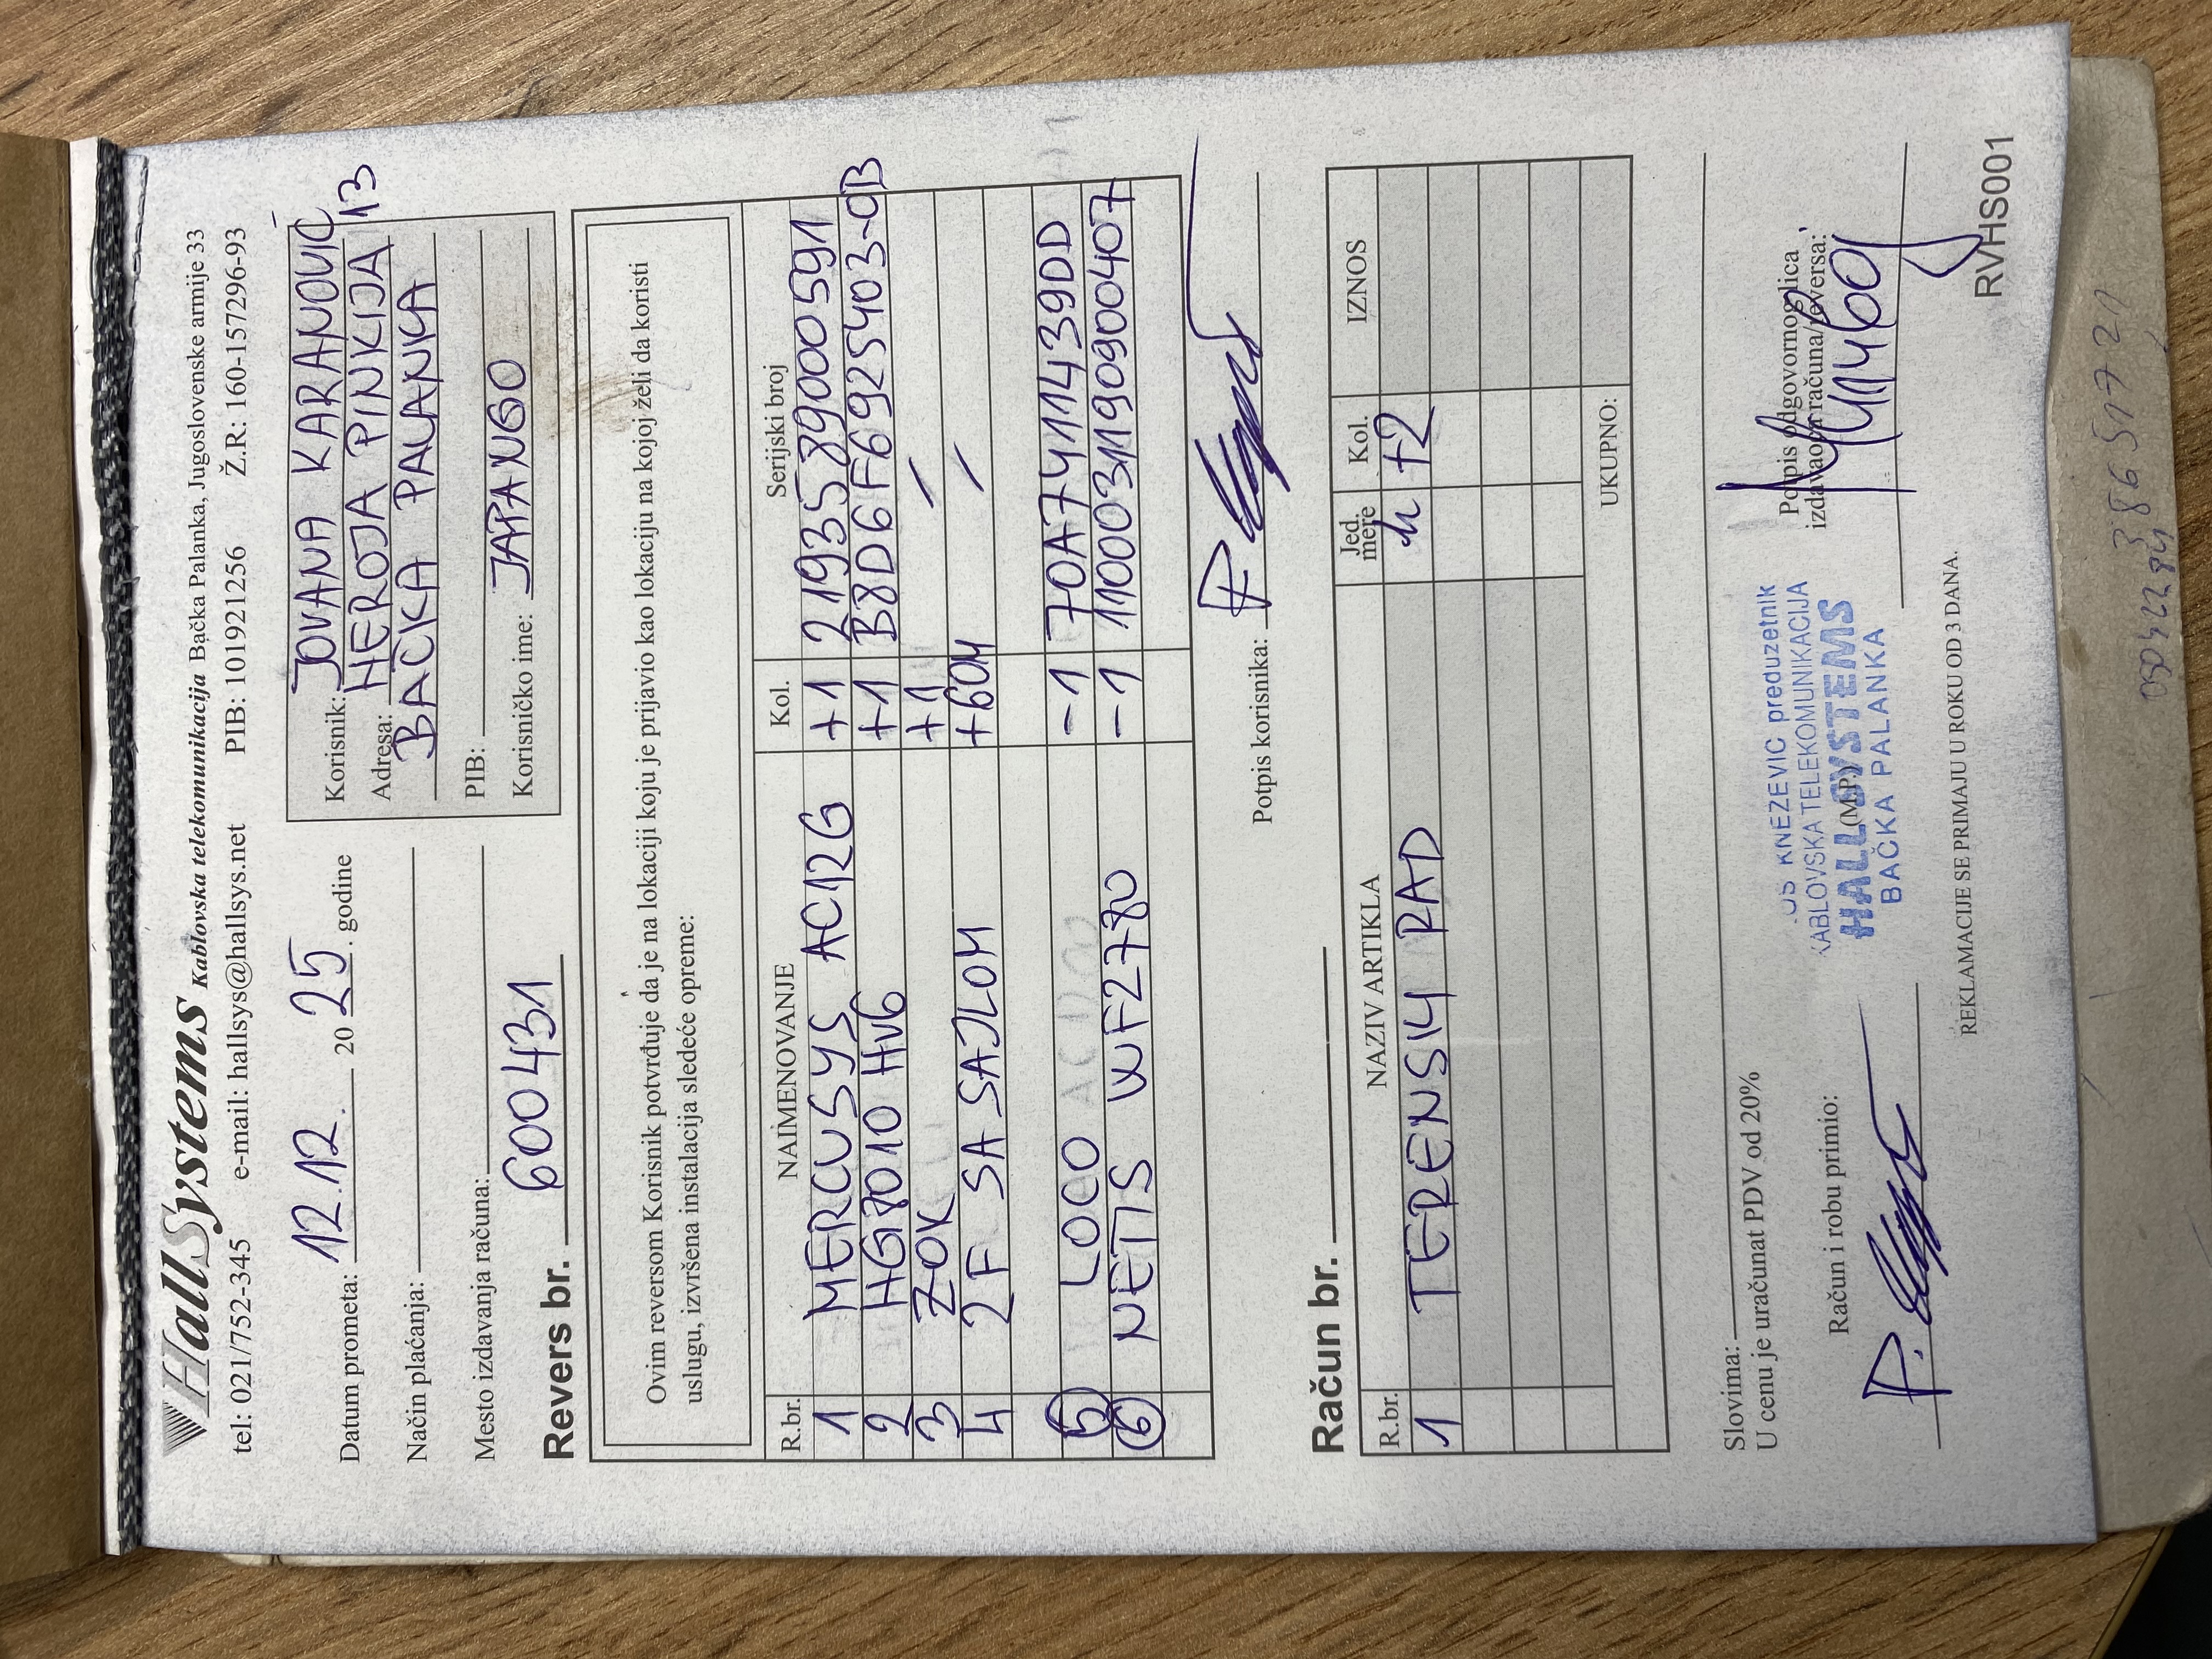 HallSystems Kablovska telekomunikacija Bačka Palanka, Jugoslovenske armije 33
tel: 021/752-345 e-mail: hallsys@hallsys.net PIB: 101921256 Ž.R: 160-157296-93
Datum prometa: 12.12. 20 25. godine
Način plaćanja:
Mesto izdavanja računa:
Korisnik: JOVANA KARANOVIĆ
Adresa: HEROJA PINKIJA 13
BAČKA PALANKA
PIB:
Korisničko ime: JAPANGO
Revers br. 600431
Ovim reversom Korisnik potvrđuje da je na lokaciji koju je prijavio kao lokaciju na kojoj želi da koristi
uslugu, izvršena instalacija sledeće opreme:
R.br. NAIMENOVANJE Kol. Serijski broj
1 MERCUSYS AC12G +1 2193589000591
2 HG8010 Hv6 +1 B8D6F6925403-9B
3 ZOK +1 /
4 2F SA SAJLOM +60M /
5 LOCO -1 70A7411439DD
6 NETIS WF2780 -1 1100031190900407
Potpis korisnika:
Račun br.
R.br. NAZIV ARTIKLA Jed. mere Kol. IZNOS
1 TERENSKI RAD h +2
UKUPNO:
Slovima:
U cenu je uračunat PDV od 20%
Račun i robu primio:
KNEZEVIC preduzetnik
KABLOVSKA TELEKOMUNIKACIJA
HALL SYSTEMS
(M.P.)
BAČKA PALANKA
Potpis odgovornog lica
izdavaoca računa/reversa:
REKLAMACIJE SE PRIMAJU U ROKU OD 3 DANA.
RVHS001